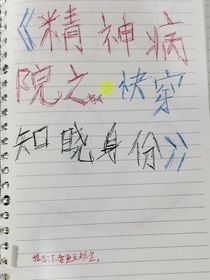 《精神病
院之快穿
知晓身份》